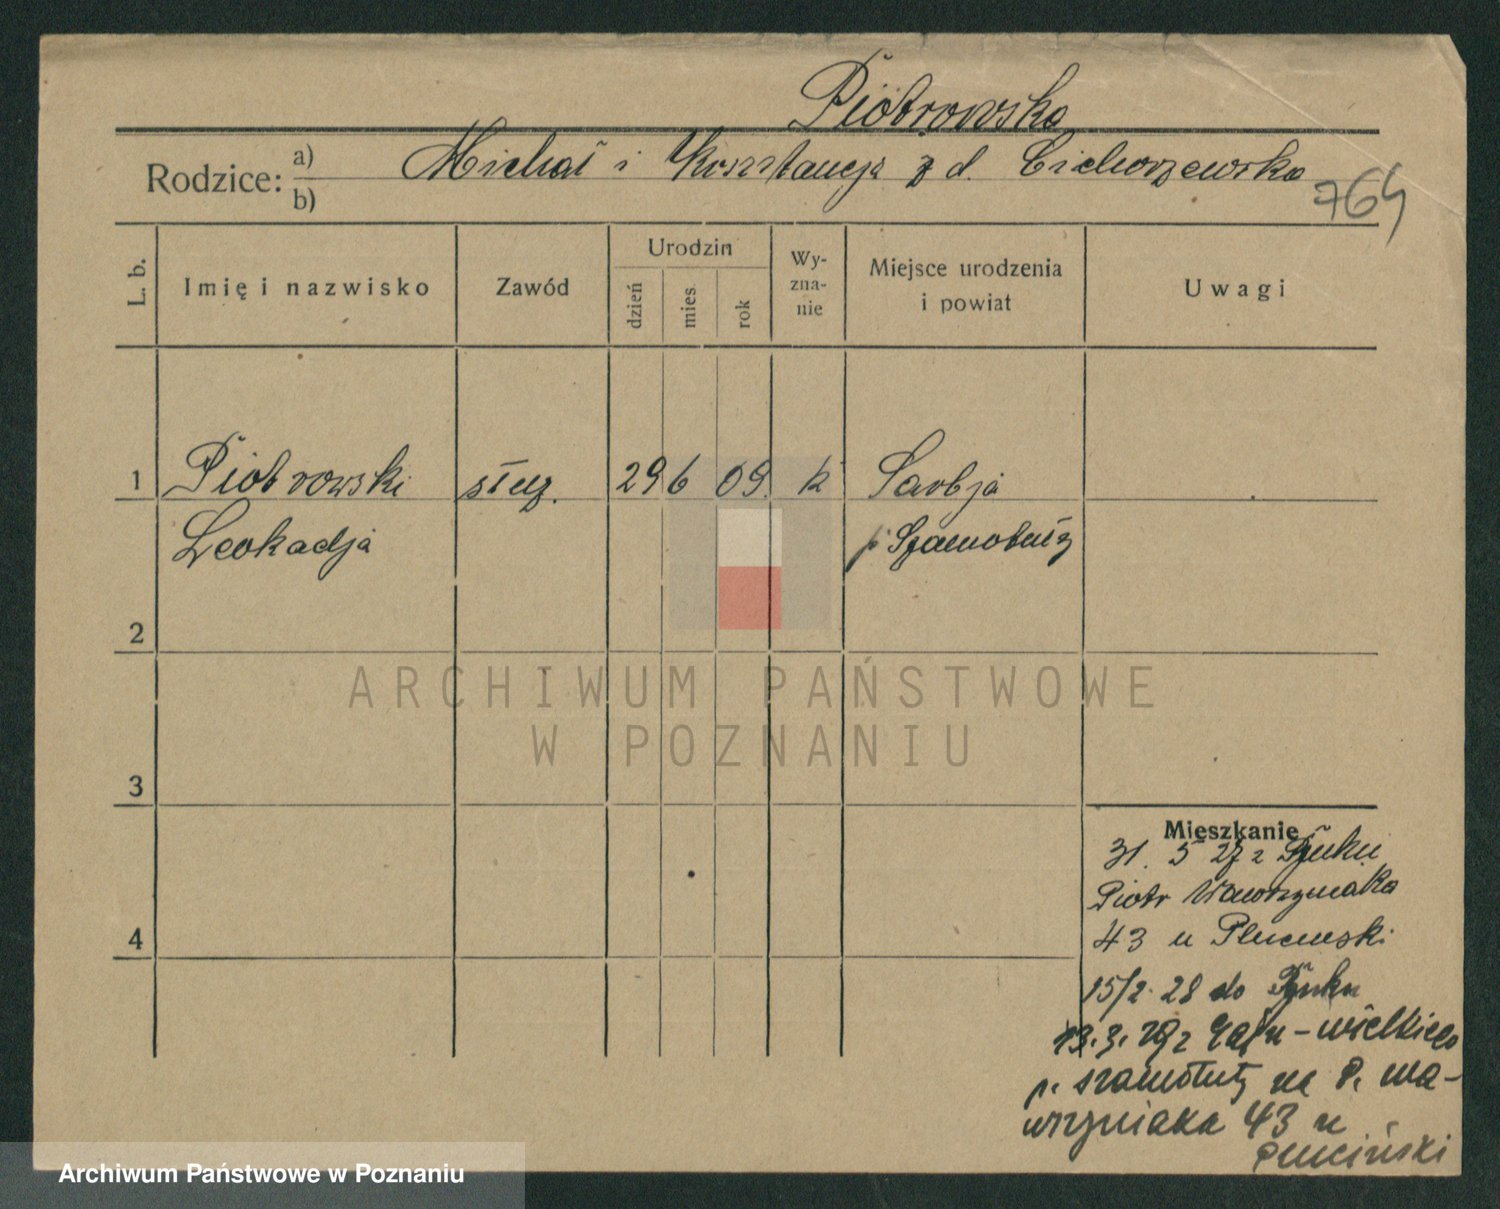 Piotrowska
Rodzice: a) b) Michał i Konstancja z d. Cichorzewska
764
L. b. Imię i nazwisko Zawód Urodzin dzień mies. rok Wy-zna-nie Miejsce urodzenia i powiat Uwagi
1 Piotrowski służ. 29 6 09. k Sarbja
Leokadja p. Szamotuły
2
ARCHIWUM PAŃSTWOWE
W POZNANIU
3
Mieszkanie
31. 5 27 z
Piotr Wawrzyniaka
43 u
4
15/2. 28 do
13.3.29 z Gaju-wielkiego
p. szamotuły na P. wa-
wrzyniaka 43 u
Pluciński
Archiwum Państwowe w Poznaniu